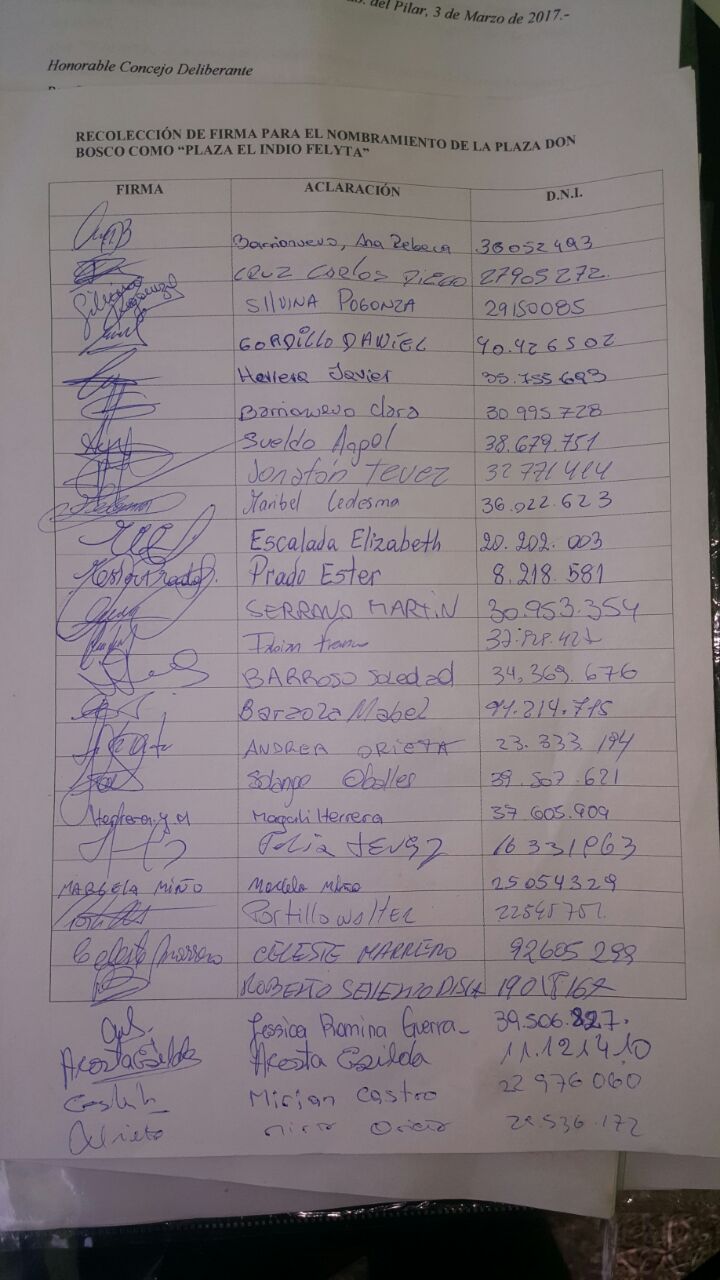 del Pilar, 3 de Marzo de 2017.-
Honorable Concejo Deliberante
RECOLECCIÓN DE FIRMA PARA EL NOMBRAMIENTO DE LA PLAZA DON
BOSCO COMO “PLAZA EL INDIO FELYTA”
FIRMA ACLARACIÓN D.N.I.
Barrionuevo, Ana Rebeca
CRUZ CARLOS DIEGO 27905272.
SILVINA POGONZA 29150085
GORDILLO DANIEL 40.426502
Herrera Javier 35.755.693
Barrionuevo Clara 30 995.728
Sueldo 38.679.751
Jonatan Tevez 32 771 414
Maribel Ledesma 36.022.623
Escalada Elizabeth 20.202.003
Prado Ester 8.218.581
SERRANO MARTIN 30.953.354
BARROSO Soledad 34,369.676
Barzola Mabel
ANDREA ORIETA 23.333.194
Solange
Herrera y.a Magali Herrera 37.605.909
TEVEZ
MARCELA MIÑO Marcela Miño 25054329
Portillo Walter
Celeste Marrero CELESTE MARRERO 92605 299
ROBERTO
Jessica Romina Guerra 39.506.827.
Acosta Gsilda Acosta Gsilda 11.121410
Mirian Castro 22 976 060